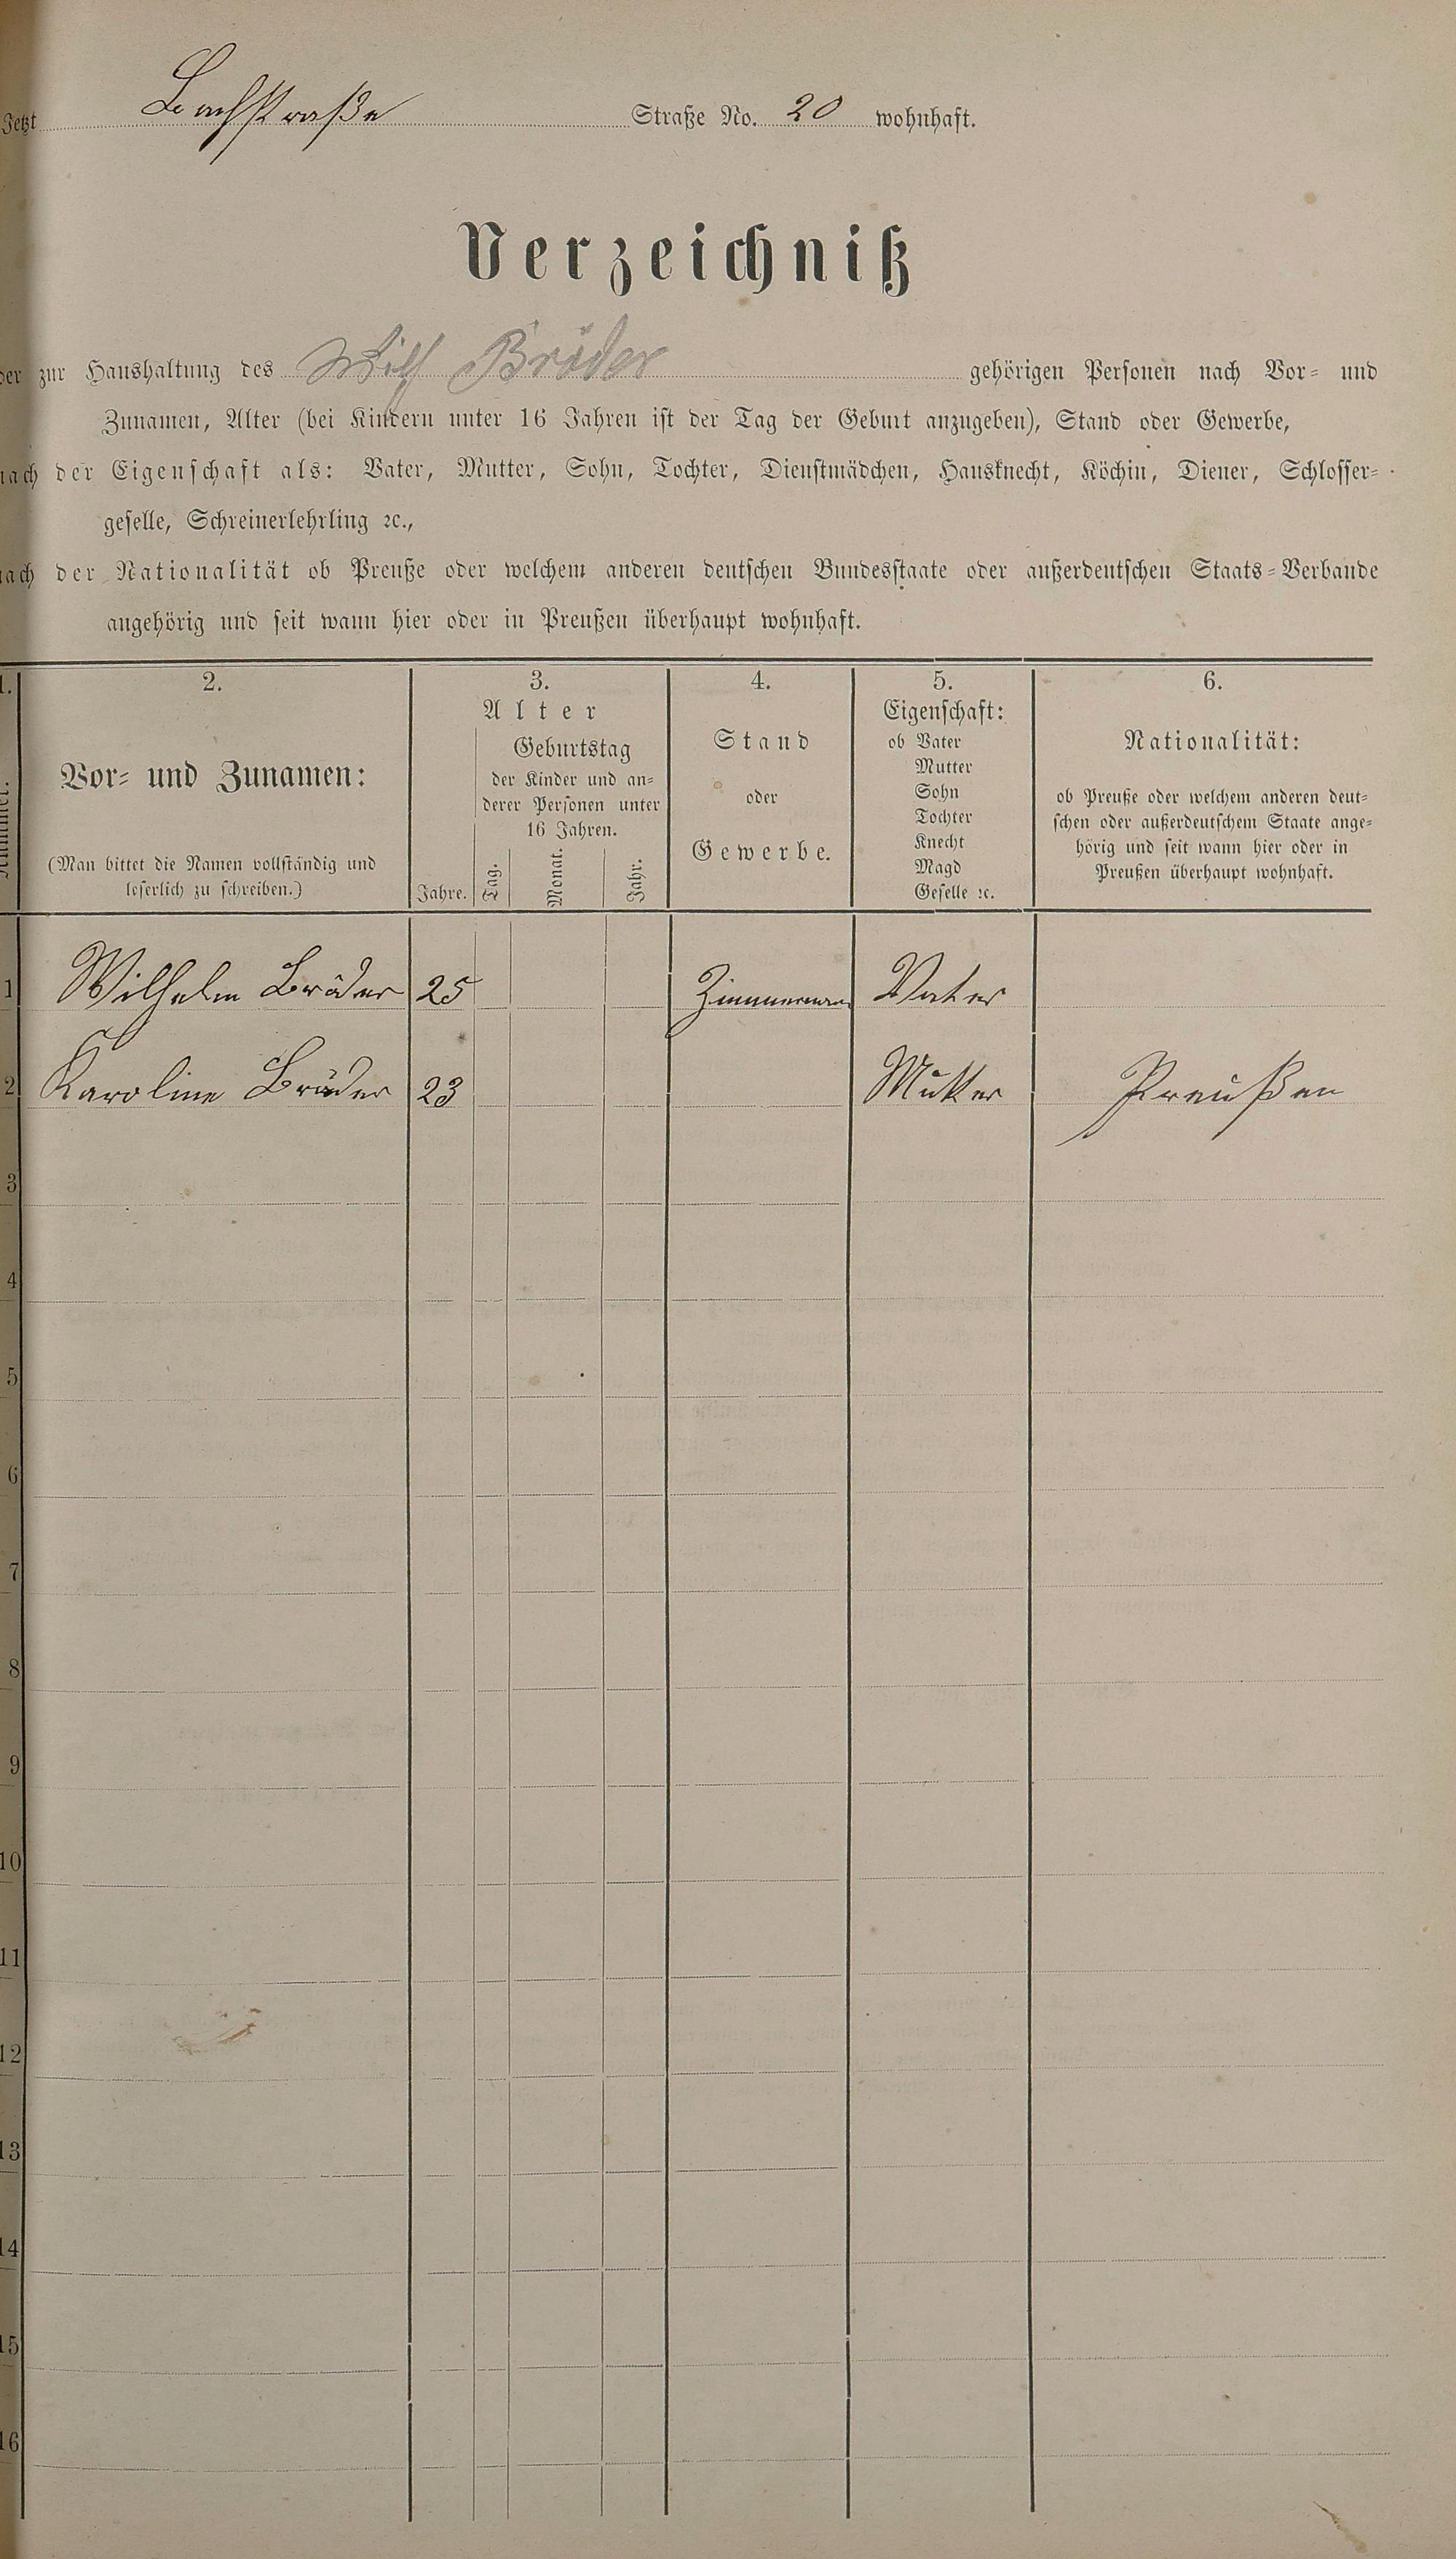 Jetzt Bachstraße Straße No. 20 wohnhaft.
Verzeichniß
der zur Haushaltung des Wilh Bröder gehörigen Personen nach Vor- und
Zunamen, Alter (bei Kindern unter 16 Jahren ist der Tag der Geburt anzugeben), Stand oder Gewerbe,
nach der Eigenschaft als: Vater, Mutter, Sohn, Tochter, Dienstmädchen, Hausknecht, Köchin, Diener, Schlosser-
geselle, Schreinerlehrling ꝛc.,
nach der Nationalität ob Preuße oder welchem anderen deutschen Bundesstaate oder außerdeutschen Staats-Verbande
angehörig und seit wann hier oder in Preußen überhaupt wohnhaft.
1. 2. 3. 4. 5. 6.
Nummer.
Vor- und Zunamen:
(Man bittet die Namen vollständig und
leserlich zu schreiben.)
Alter
Jahre.
Geburtstag
der Kinder und an-
derer Personen unter
16 Jahren.
Tag. Monat. Jahr.
Stand
oder
Gewerbe.
Eigenschaft:
ob Vater
Mutter
Sohn
Tochter
Knecht
Magd
Geselle ꝛc.
Nationalität:
ob Preuße oder welchem anderen deut-
schen oder außerdeutschem Staate ange-
hörig und seit wann hier oder in
Preußen überhaupt wohnhaft.
1 Wilhelm Bröder 25 Zimmermann Vater
2 Karoline Bröder 23 Mutter Preußen
3
4
5
6
7
8
9
10
11
12
13
14
15
16